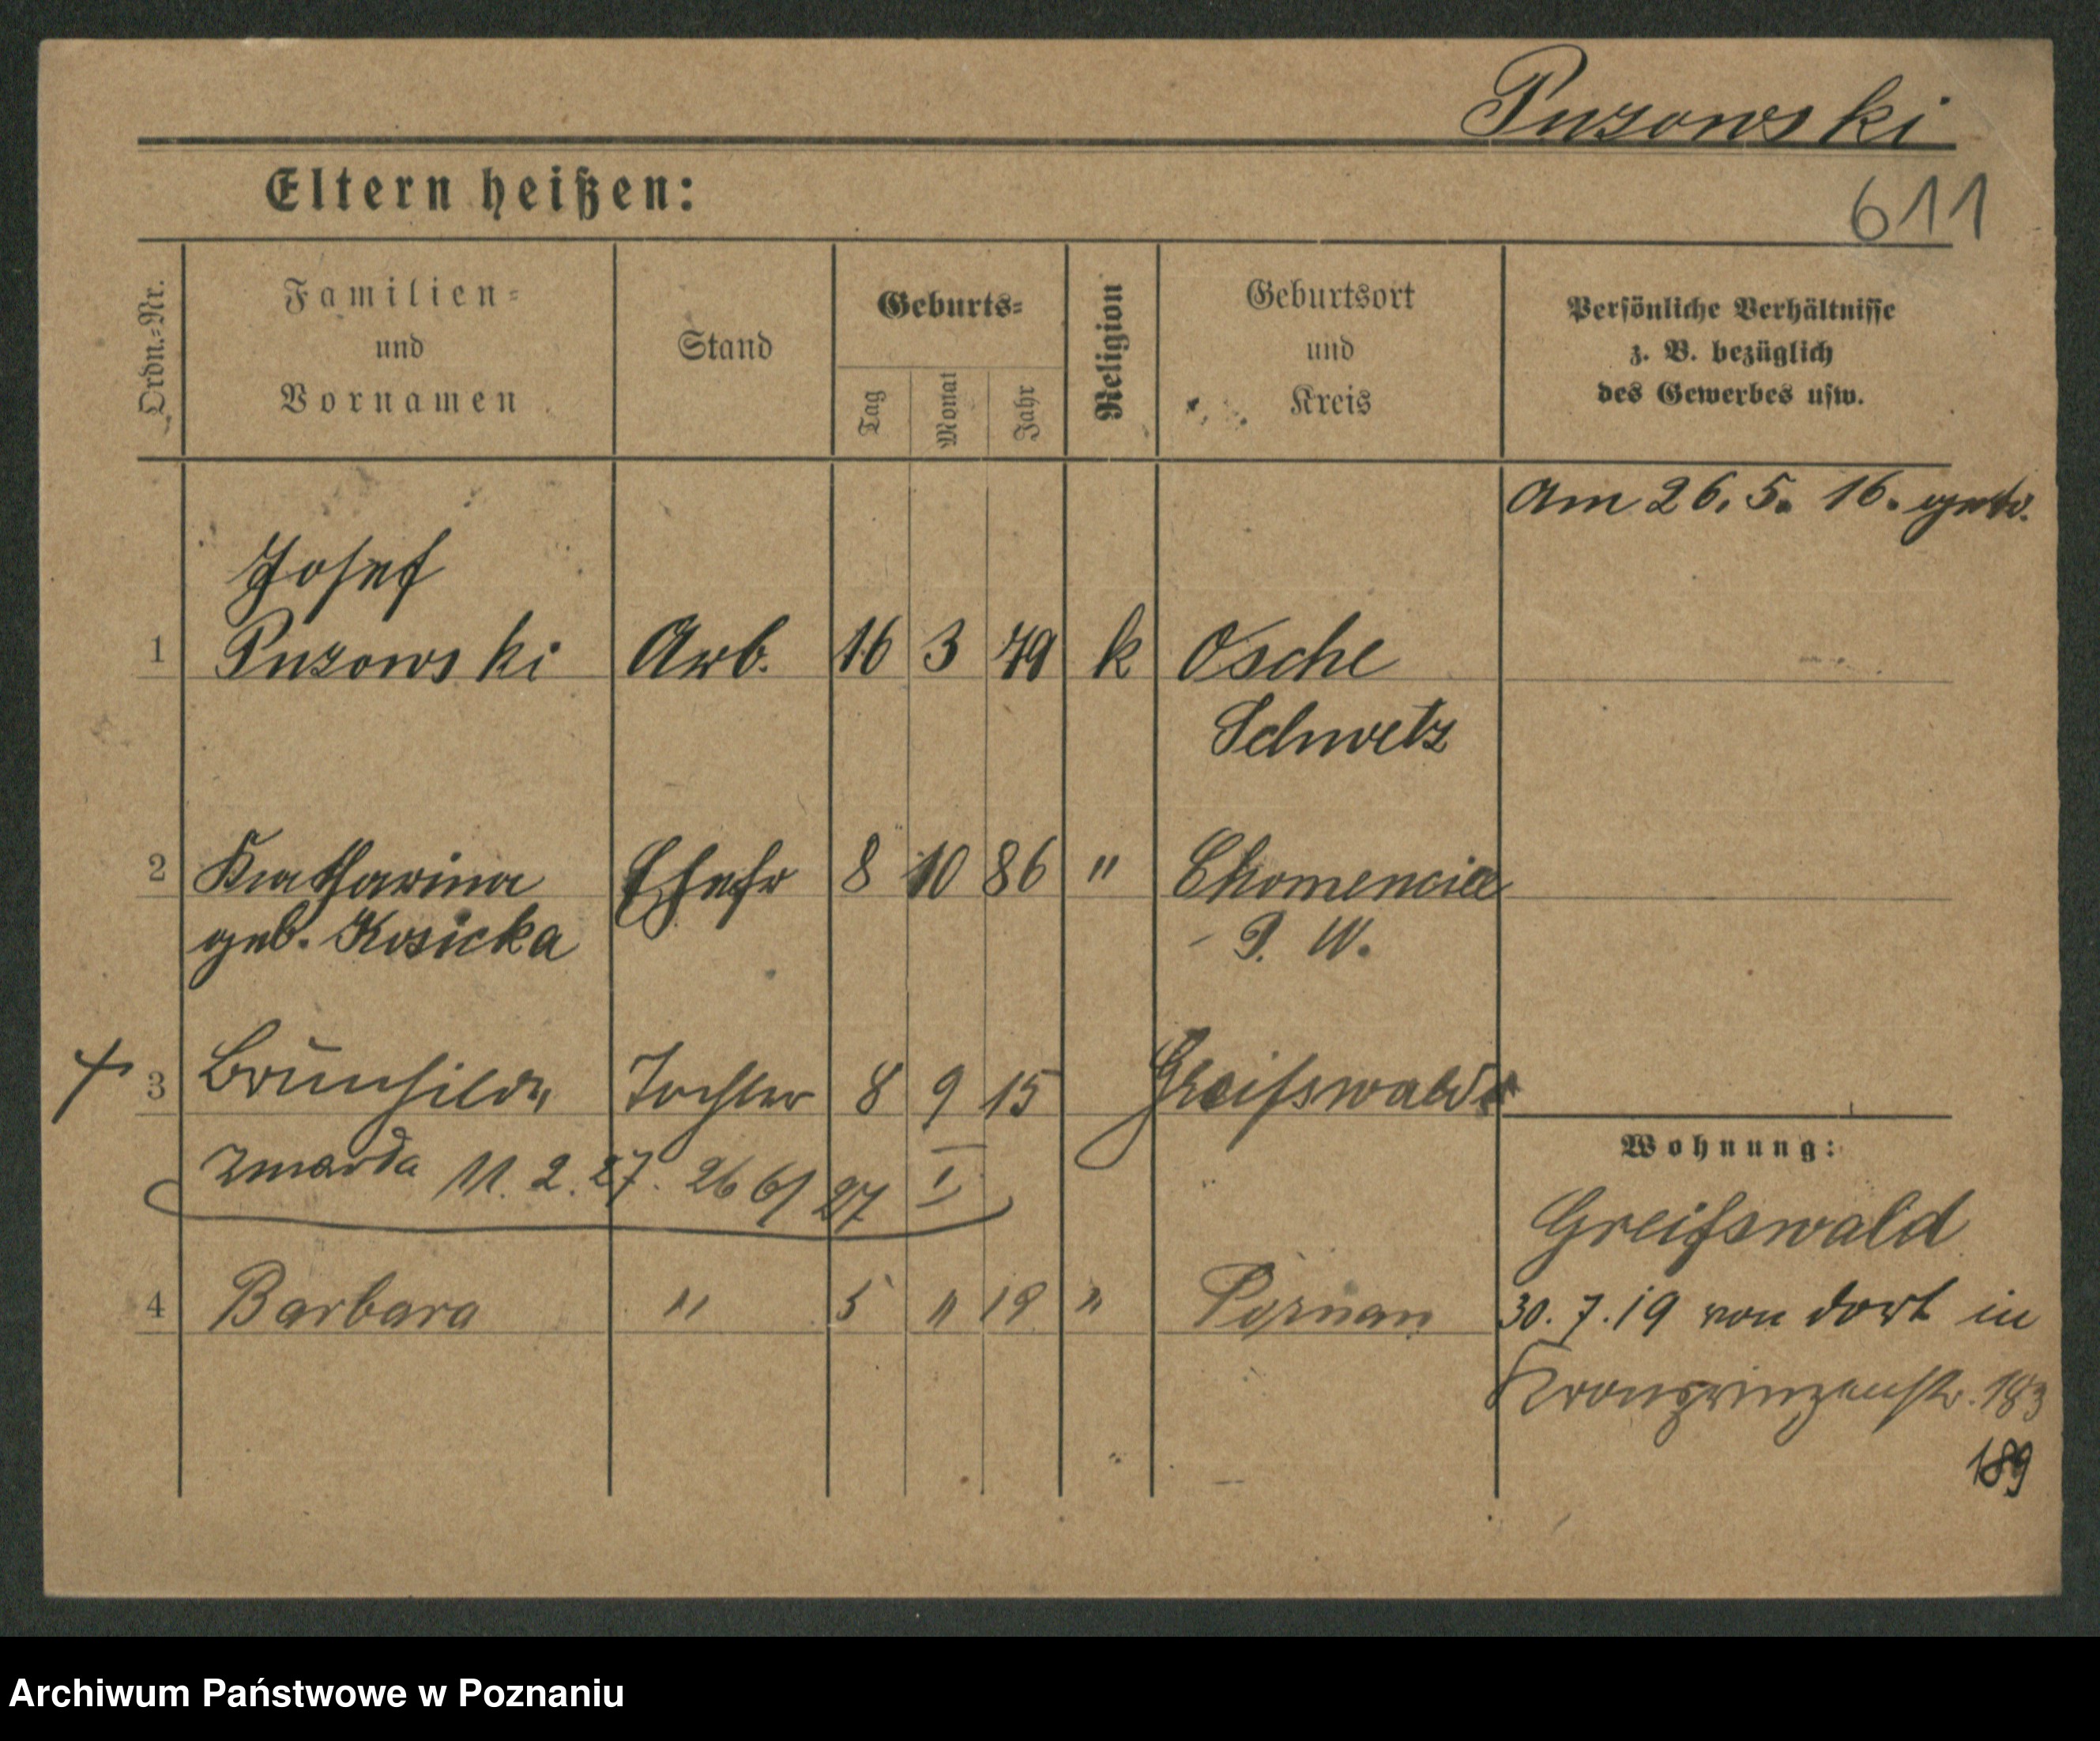 Puzowski
Eltern heißen:
611
Ordn.-Nr.
Familien-
und
Vornamen
Stand
Geburts-
Tag
Monat
Jahr
Religion
Geburtsort
und
Kreis
Persönliche Verhältnisse
z. B. bezüglich
des Gewerbes usw.
Am 26. 5. 16. getr.
Josef
1 Puzowski Arb. 16 3 79 k Osche
Schwetz
2 Katharina Ehefr 8 10 86 "
geb. Kosicka P. W.
3 Brunhilde Tochter 8 9 15 Greifswald
zmarła 11. 2. 27. 26 6/27 I
4 Barbara " 5 " 19 " Poznan
Wohnung:
Greifswald
30. 7. 19 von dort in
Kronprinzenstr. 183
189
Archiwum Państwowe w Poznaniu